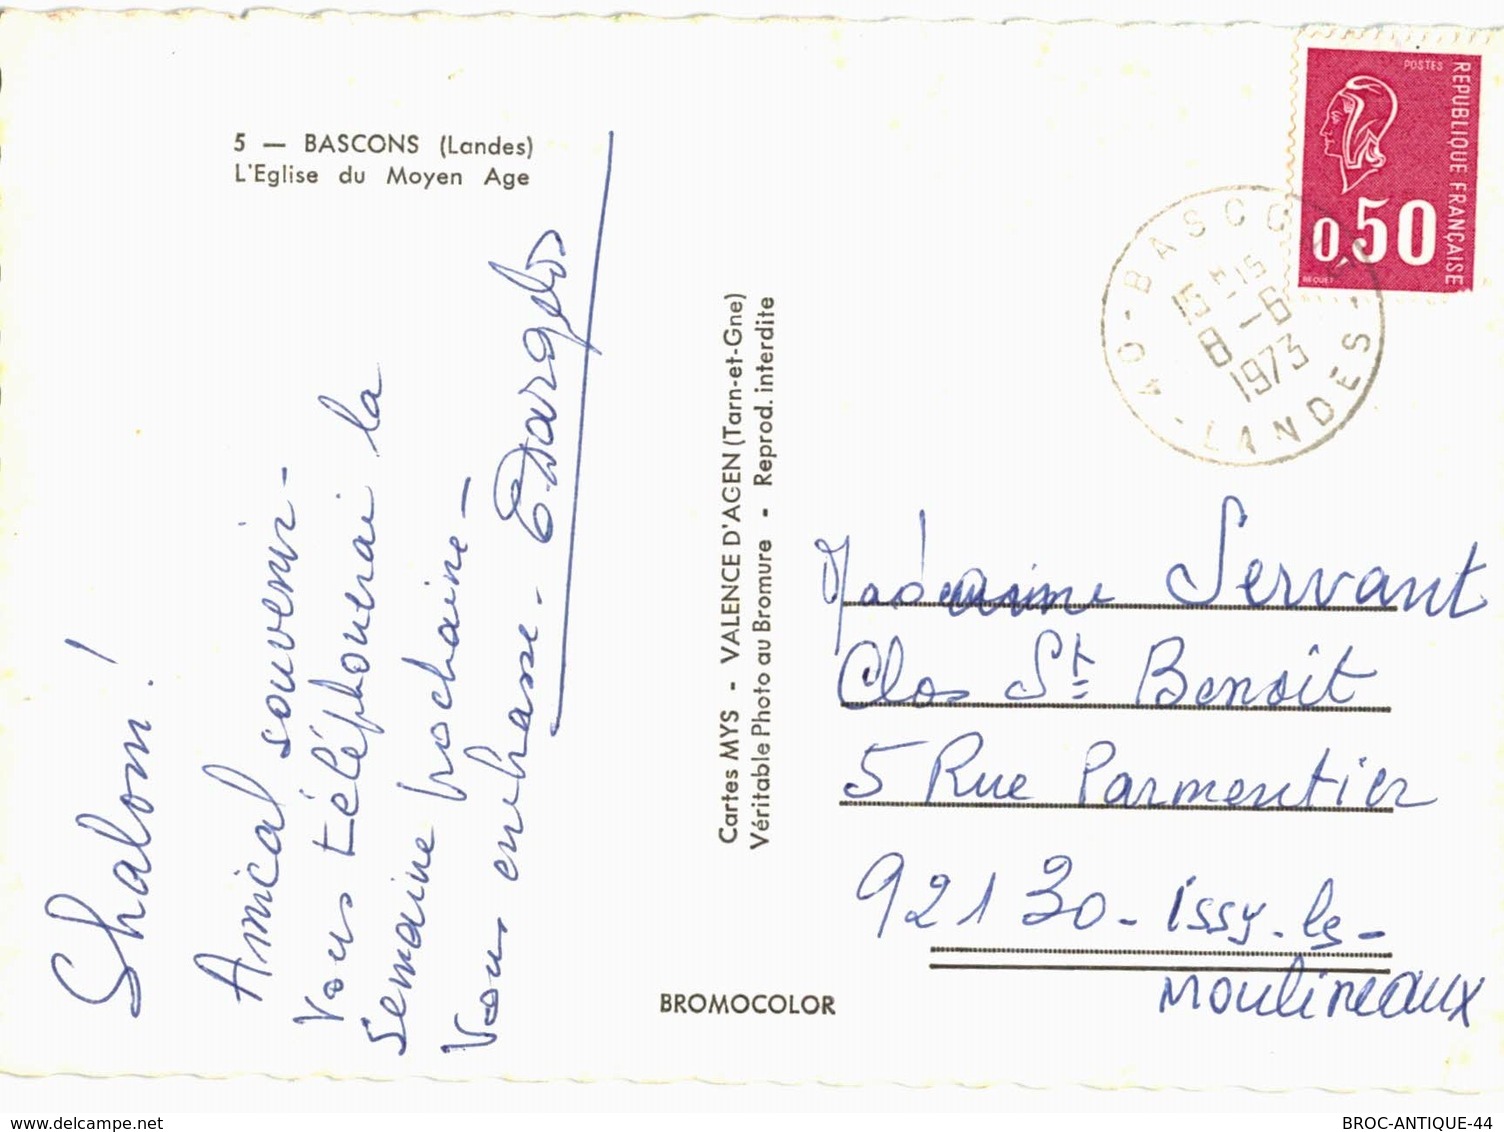 5 — BASCONS (Landes)
L'Eglise du Moyen Age
Shalom !
Amical souvenir -
Vous téléphonerai la
semaine prochaine -
Vous embrasse -
Cartes MYS - VALENCE D'AGEN (Tarn-et-Gne)
Véritable Photo au Bromure - Reprod. interdite
BROMOCOLOR
POSTES
REPUBLIQUE FRANÇAISE
0,50
BEQUET
40 - BASCONS - LANDES
15 H 15
8 - 6
1973
Madame Servant
Clos St Benoit
5 Rue Parmentier
92130 - Issy-les-
Moulineaux
delcampe.net
BROC-ANTIQUE-44